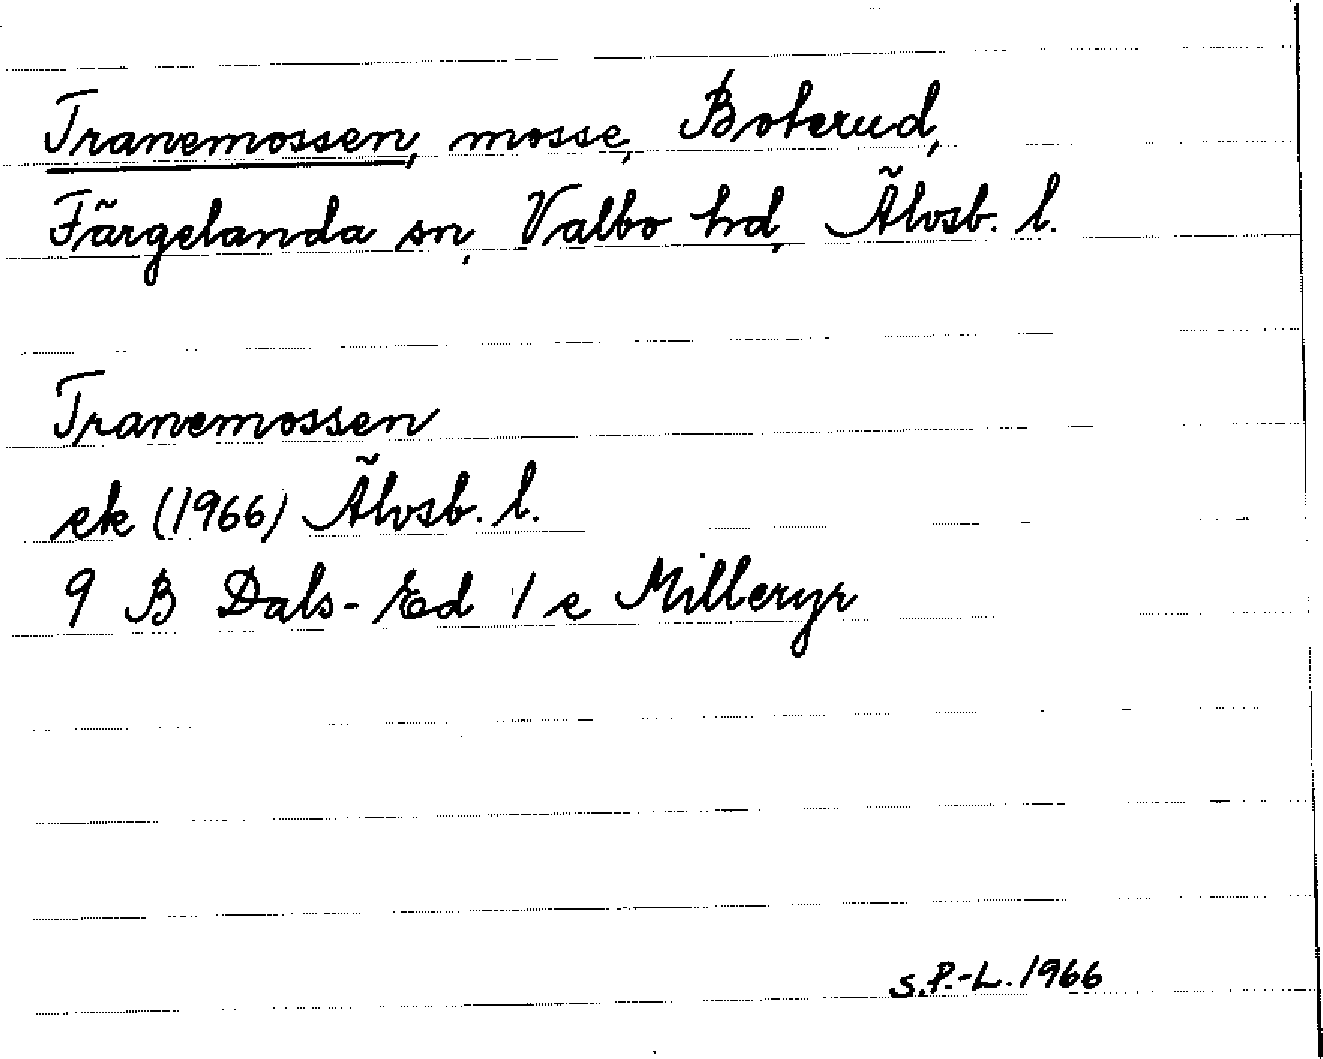 Tranemossen, mosse, Boterud,
Färgelanda sn, Valbo hd, Älvsb. l.
Tranemossen
ek (1966) Älvsb. l.
9 B Dals-Ed 1 e Milleryr
S.P.-L. 1966